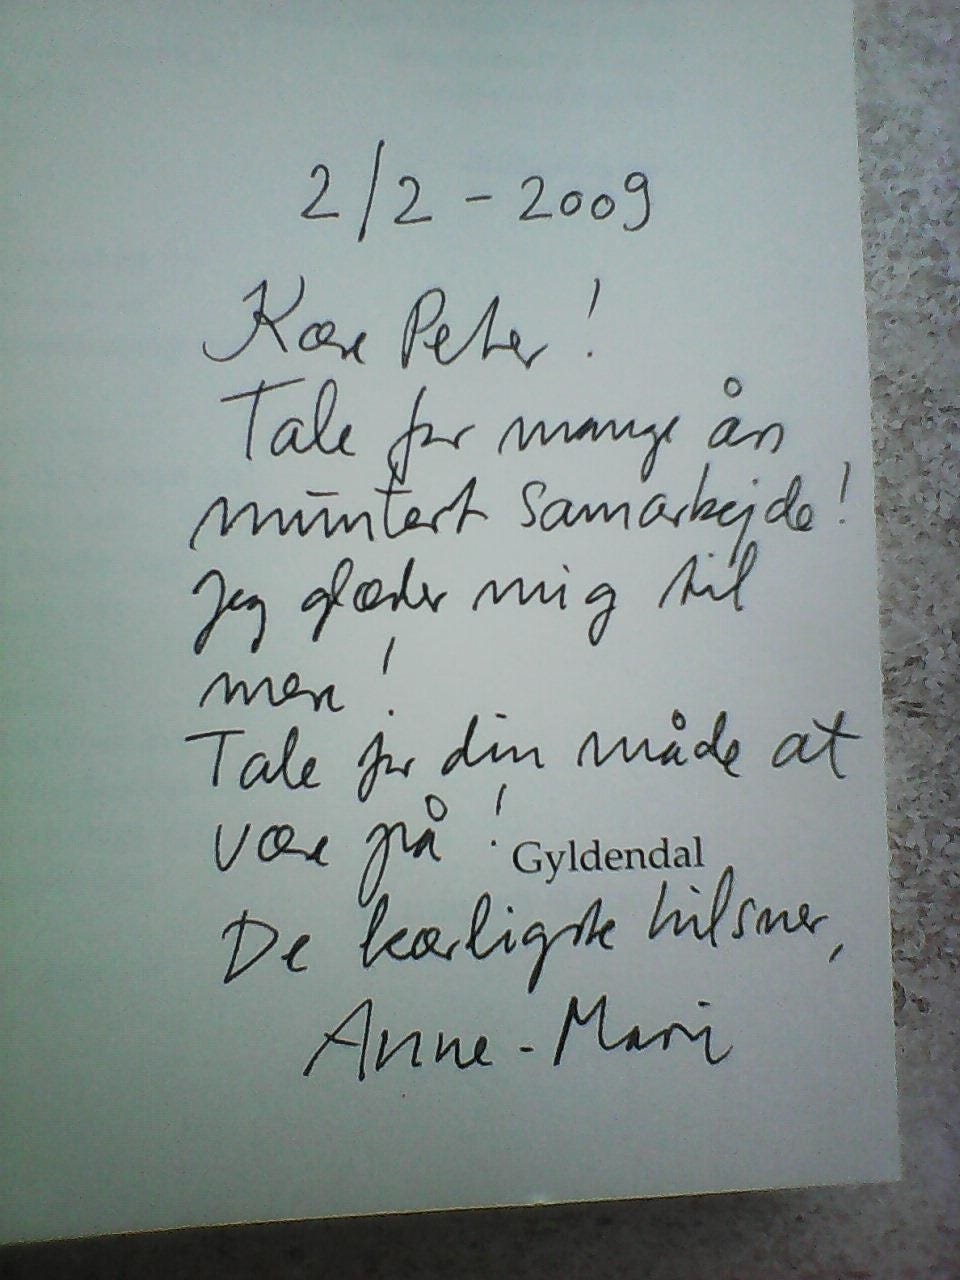 2/2 - 2009
Kære Peter!
Tak for mange års
muntert samarbejde!
Jeg glæder mig til
mere!
Tak for din måde at
være på!
Gyldendal
De kærligste hilsner,
Anne-Marie